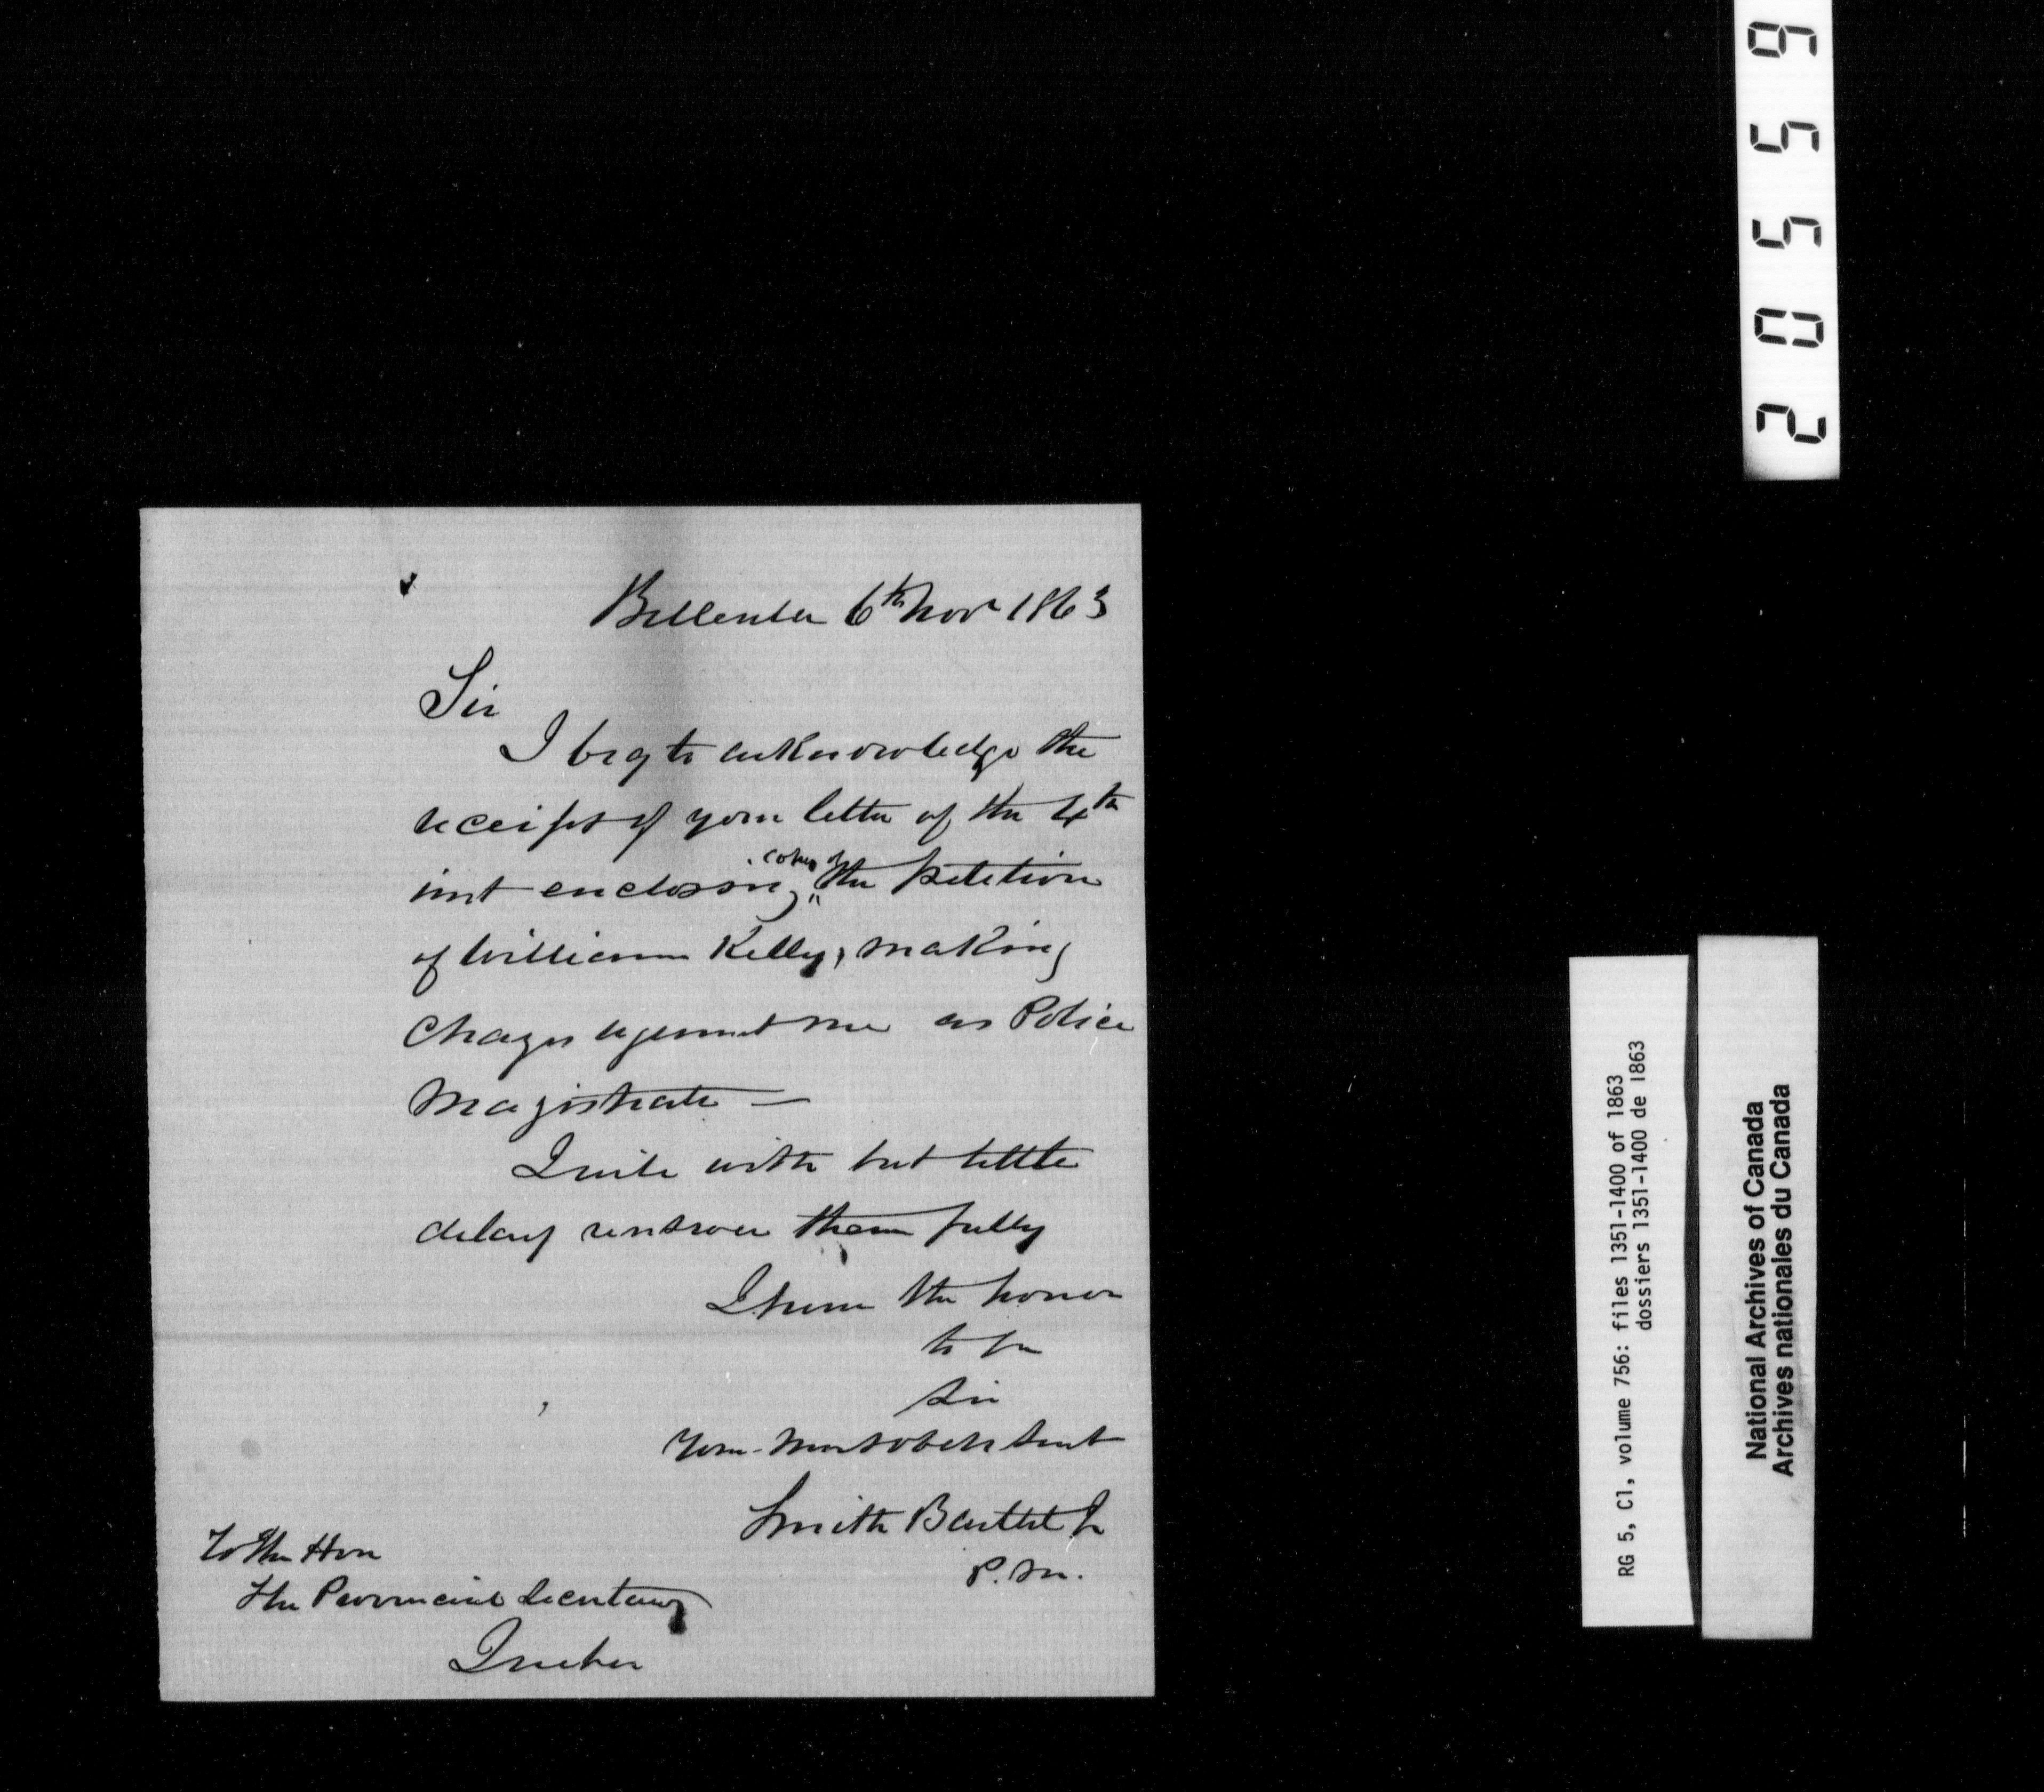 Belleville 6th Nov 1863
Sir
I beg to acknowledge the
receipt of your letter of the 4th
inst enclosing copy of the petition
of William Kelly, making
Charges against me as Police
Magistrate —
I will with but little
delay answer them fully
I have the honor
to be
Sir
Your most obdt Servt
Smith Bartlet
P.M.
To The Hon
The Provincial Secretary
Quebec
20559
RG 5, C1, volume 756: files 1351-1400 of 1863
dossiers 1351-1400 de 1863
National Archives of Canada
Archives nationales du Canada